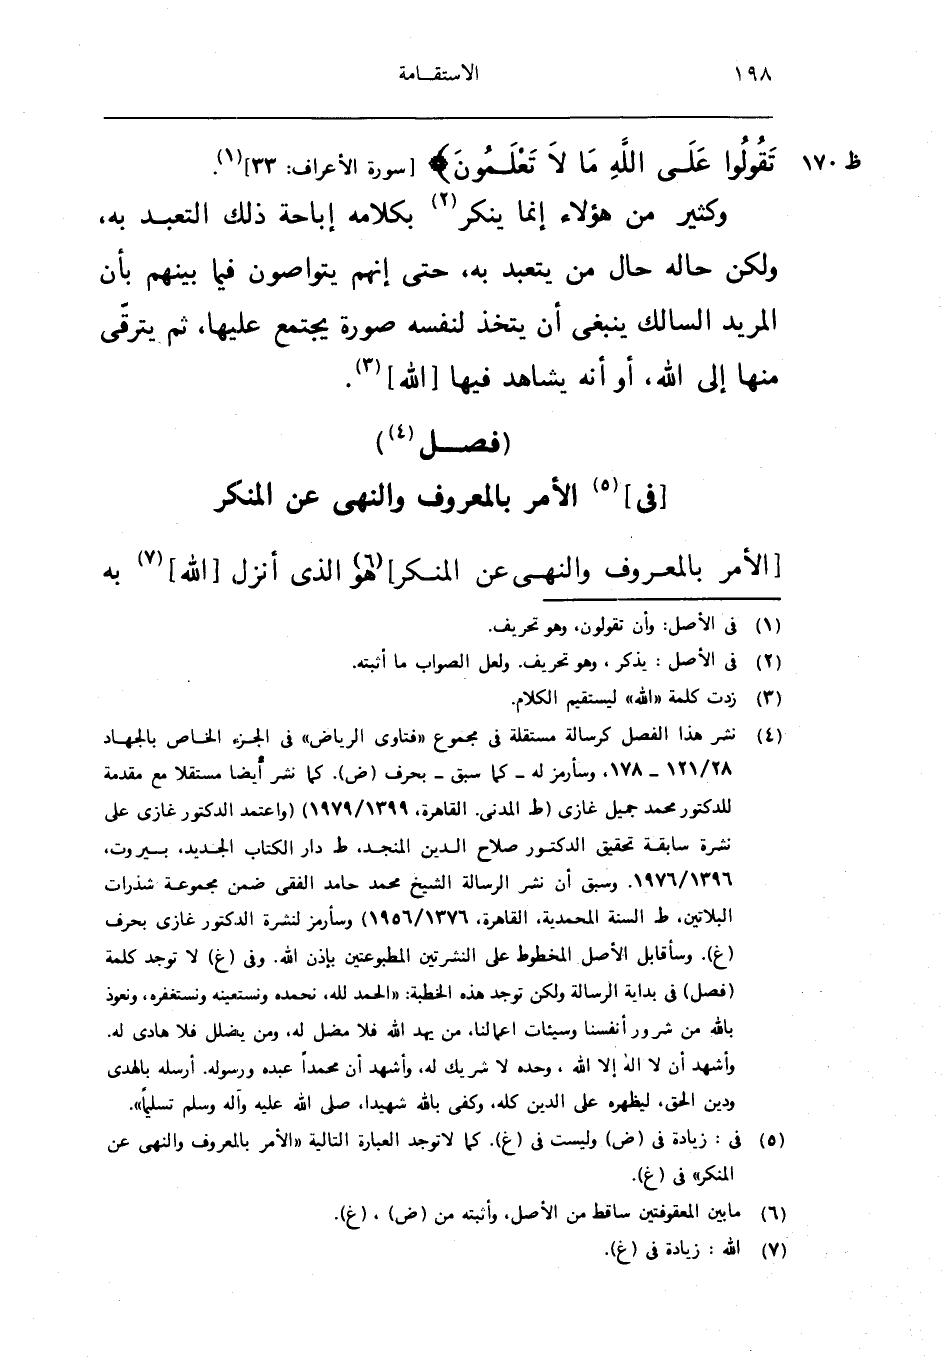 ١٩٨ الاستقـامة
ظ ١٧٠ تَقُولُوا عَلَـى اللَّهِ مَا لاَ تَعْلَـمُونَ﴾ [سورة الأعراف: ٣٣](١).
وكثير من هؤلاء إنما ينكر(٢) بكلامه إباحة ذلك التعبـد به،
ولكن حاله حال من يتعبد به، حتى إنهم يتواصون فيما بينهم بأن
المريد السالك ينبغى أن يتخذ لنفسه صورة يجتمع عليها، ثم يترقّى
منها إلى الله، أو أنه يشاهد فيها [الله](٣).
(فصـــل(٤))
[فى](٥) الأمر بالمعروف والنهى عن المنكر
[الأمر بالمعـروف والنهـى عن المنـكر](٦) هو الذى أنزل [الله](٧) به
(١) فى الأصل: وأن تقولون، وهو تحريف.
(٢) فى الأصل : يذكر ، وهو تحريف. ولعل الصواب ما أثبته.
(٣) زدت كلمة «الله» ليستقيم الكلام.
(٤) نشر هذا الفصل كرسالة مستقلة فى مجموع «فتاوى الرياض» فى الجزء الخاص بالجهـاد
١٢١/٢٨ ـ ١٧٨، وسأرمز له ـ كما سبق ـ بحرف (ض). كما نشر أيضا مستقلا مع مقدمة
للدكتور محمد جميل غازى (ط المدنى. القاهرة، ١٩٧٩/١٣٩٩) (واعتمد الدكتور غازى على
نشرة سابقـة تحقيق الدكتـور صلاح الـدين المنجـد، ط دار الكتاب الجـديد، بـيروت،
١٩٧٦/١٣٩٦. وسبق أن نشر الرسالة الشيخ محمد حامد الفقى ضمن مجموعـة شذرات
البلاتين، ط السنة المحمدية، القاهرة، ١٩٥٦/١٣٧٦) وسأرمز لنشرة الدكتور غازى بحرف
(غ). وسأقابل الأصل المخطوط على النشرتين المطبوعتين بإذن الله. وفى (غ) لا توجد كلمة
(فصل) فى بداية الرسالة ولكن توجد هذه الخطبة: «الحمد لله، نحمده ونستعينه ونستغفره، ونعوذ
بالله من شرور أنفسنا وسيئات اعمالنا، من يهد الله فلا مضل له، ومن يضلل فلا هادى له.
وأشهد أن لا اله إلا الله ، وحده لا شريك له، وأشهد أن محمداً عبده ورسوله. أرسله بالهدى
ودين الحق، ليظهره على الدين كله، وكفى بالله شهيدا، صلى الله عليه وآله وسلم تسليماً».
(٥) فى : زيادة فى (ض) وليست فى (غ). كما لاتوجد العبارة التالية «الأمر بالمعروف والنهى عن
المنكر» فى (غ).
(٦) مابين المعقوفتين ساقط من الأصل، وأثبته من (ض) ، (غ).
(٧) الله : زيادة فى (غ).